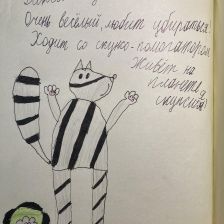 Очень весёлый, любит убираться.
Ходит со скунсо-помогатором.
Живёт на
планете